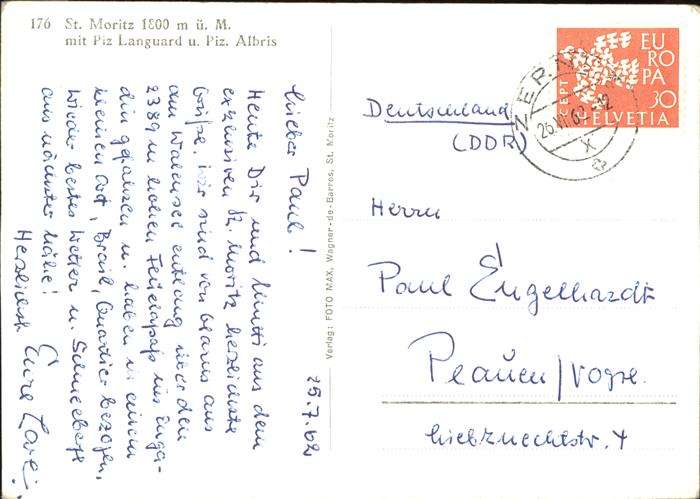 176 St. Moritz 1800 m ü. M.
mit Piz Languard u. Piz. Albris
Lieber Paul!
25.7.62
Heute Dir und Mutti aus dem
exklusiven St. Moritz herzlichste
Grüße. Wir sind von Glarus aus
am Walensee entlang über den
2389 m hohen Flüelapaß ins Enga-
din gefahren u. haben in einem
kleinen Ort, Quartier bezogen,
wieder bestes Wetter u. Schneeberge
aus nächster Nähe!
Herzlichst Eure
Verlag: FOTO MAX, Wagner-de-Barros, St. Moritz
EUROPA
CEPT
30
HELVETIA
ZER
26.VI 62-12
X
Deutschland
(DDR)
Herrn
Paul Engelhardt
Plauen/Vogtl.
Liebknechtstr. 4